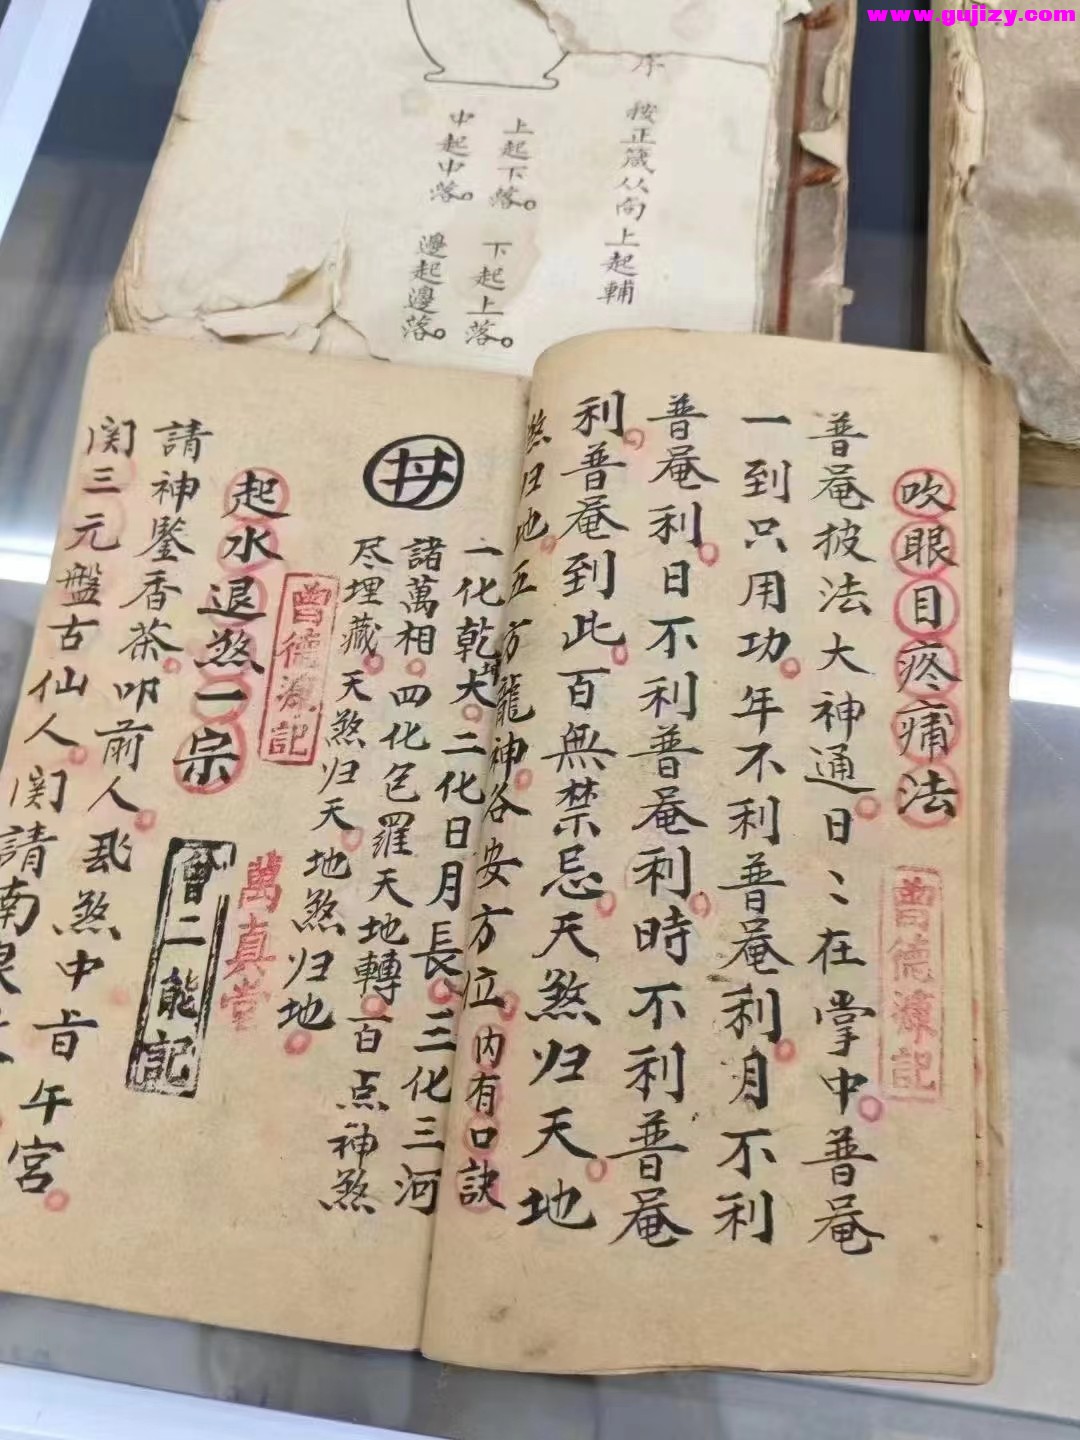 www.gujizy.com
序
按正箴从向上起輔
上起下落。下起上落。
中起中落。邊起邊落。
吹眼目疼痛法
曾德濂記
普菴披法大神通。日〻在掌中。普菴
一到只用功。年不利普菴利。月不利
普菴利。日不利普菴利。時不利普菴
利。普菴到此百無禁忌。天煞归天。地
煞归地。五方龍神各安方位。内有口訣
一化乾坤大。二化日月長。三化三河
諸萬相。四化包羅天地轉。百点神煞
尽埋藏。天煞归天。地煞归地。
曾德濂記
萬真堂
起水退煞一宗
曾二能記
請神鑒香茶。叩前人。煞中
関三元盤古仙人。関午宮。
請南